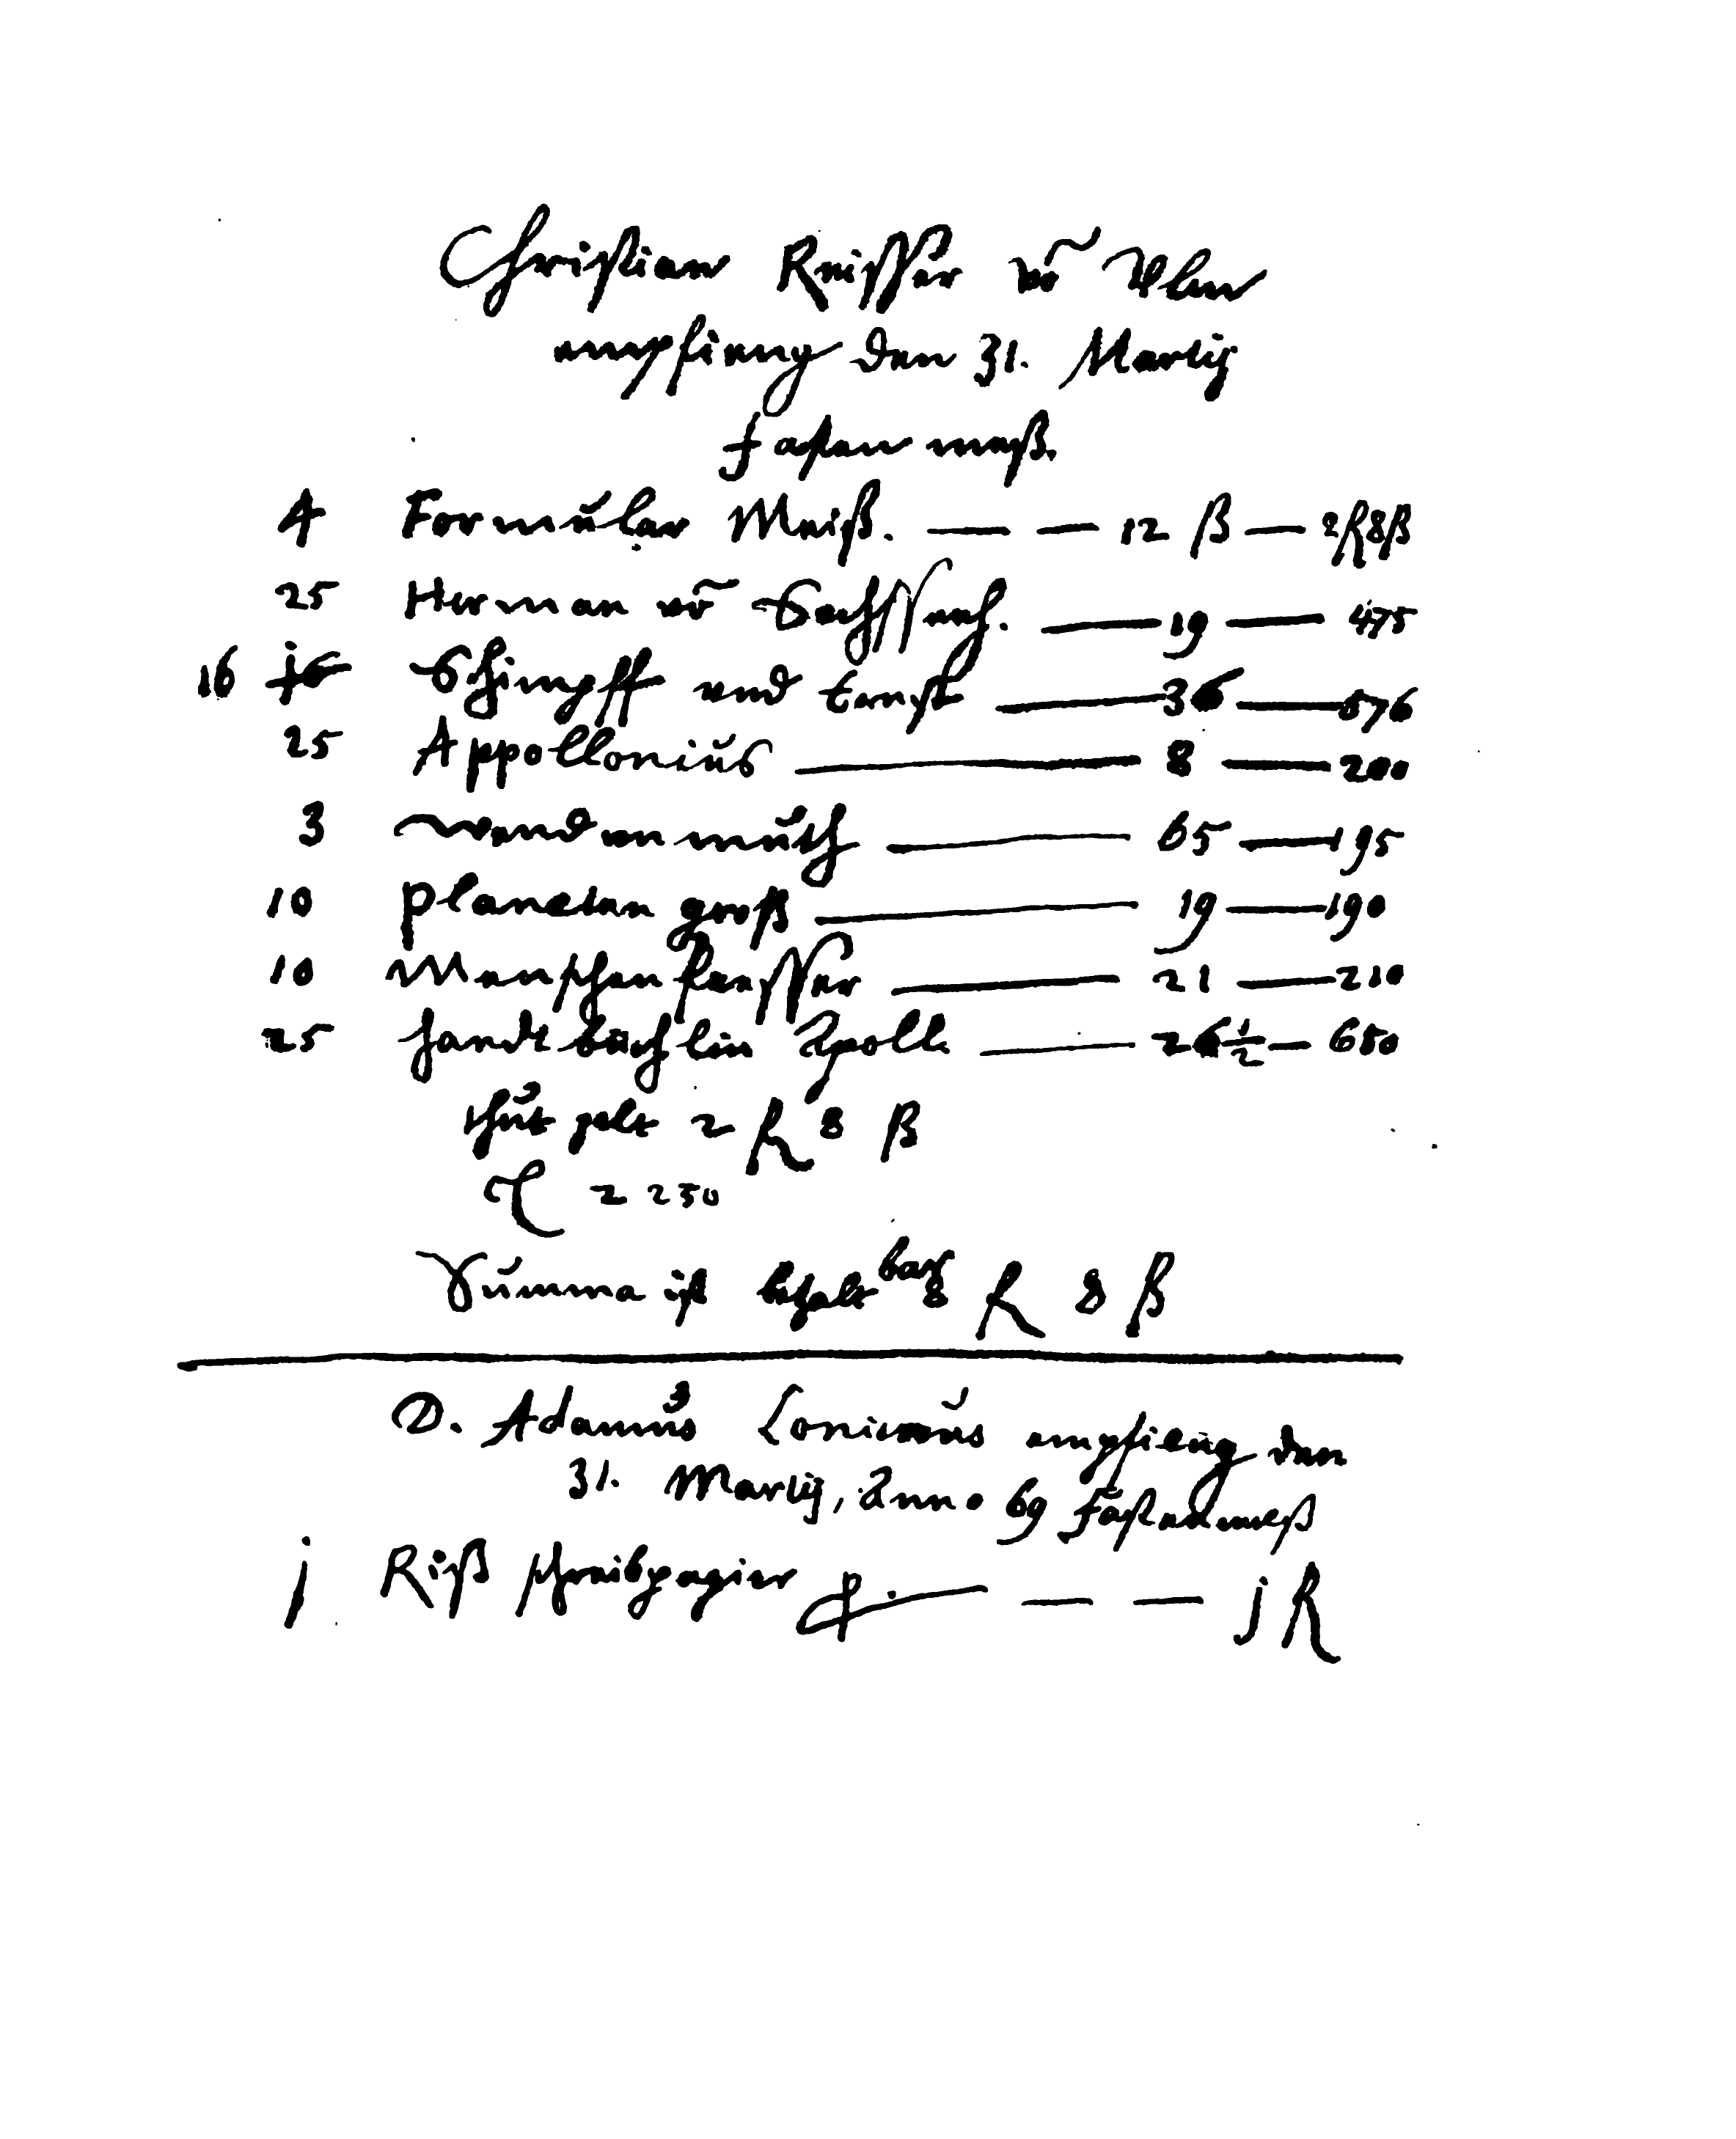 Christian Reisser võ Vlm
empfieng den 31. Martij
fasten meß.
4 Formular Meiß. — — 12 ß — 2 R 8 ß
25 Herman võ Sachssenh. — 19 — 475
16 Schimpff und ernst — 36 — 576
25 Appollonius — 8 — 200
3 Wendunmuth — 65 — 195
10 planeten groß — 19 — 190
10 Menschen fresser — 21 — 210
25 handtbüchlin Apoll. — 26 1/2 — 650
thut gelt 2 R 8 ß
C 2 250
Summa ist bezalt bar 8 R 8 ß
D. Adamus Lonicerus empfieng den
31. Martij, Anno 69 fastenmeß
j Riß schreibpapier — — j R